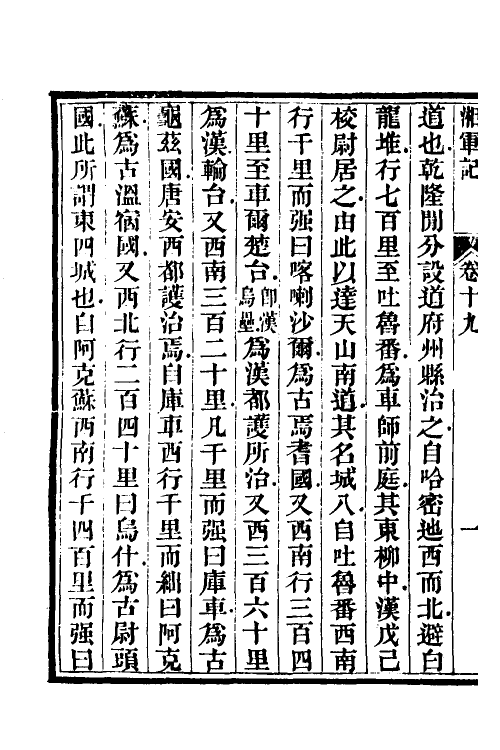 湘軍記
卷十九
一
道也乾隆閒分設道府州縣治之自哈密迆西而北避白
龍堆行七百里至吐魯番為車師前庭其東柳中漢戊己
校尉居之由此以達天山南道其名城八自吐魯番西南
行千里而强曰喀喇沙爾為古焉耆國又西南行三百四
十里至車爾楚台卽漢烏壘為漢都護所治又西三百六十里
為漢輪台又西南三百二十里凡千里而强曰庫車為古
龜茲國唐安西都護治焉自庫車西行千里而縮曰阿克
蘇為古溫宿國又西北行二百四十里曰烏什為古尉頭
國此所謂東四城也自阿克蘇西南行千四百里而强曰